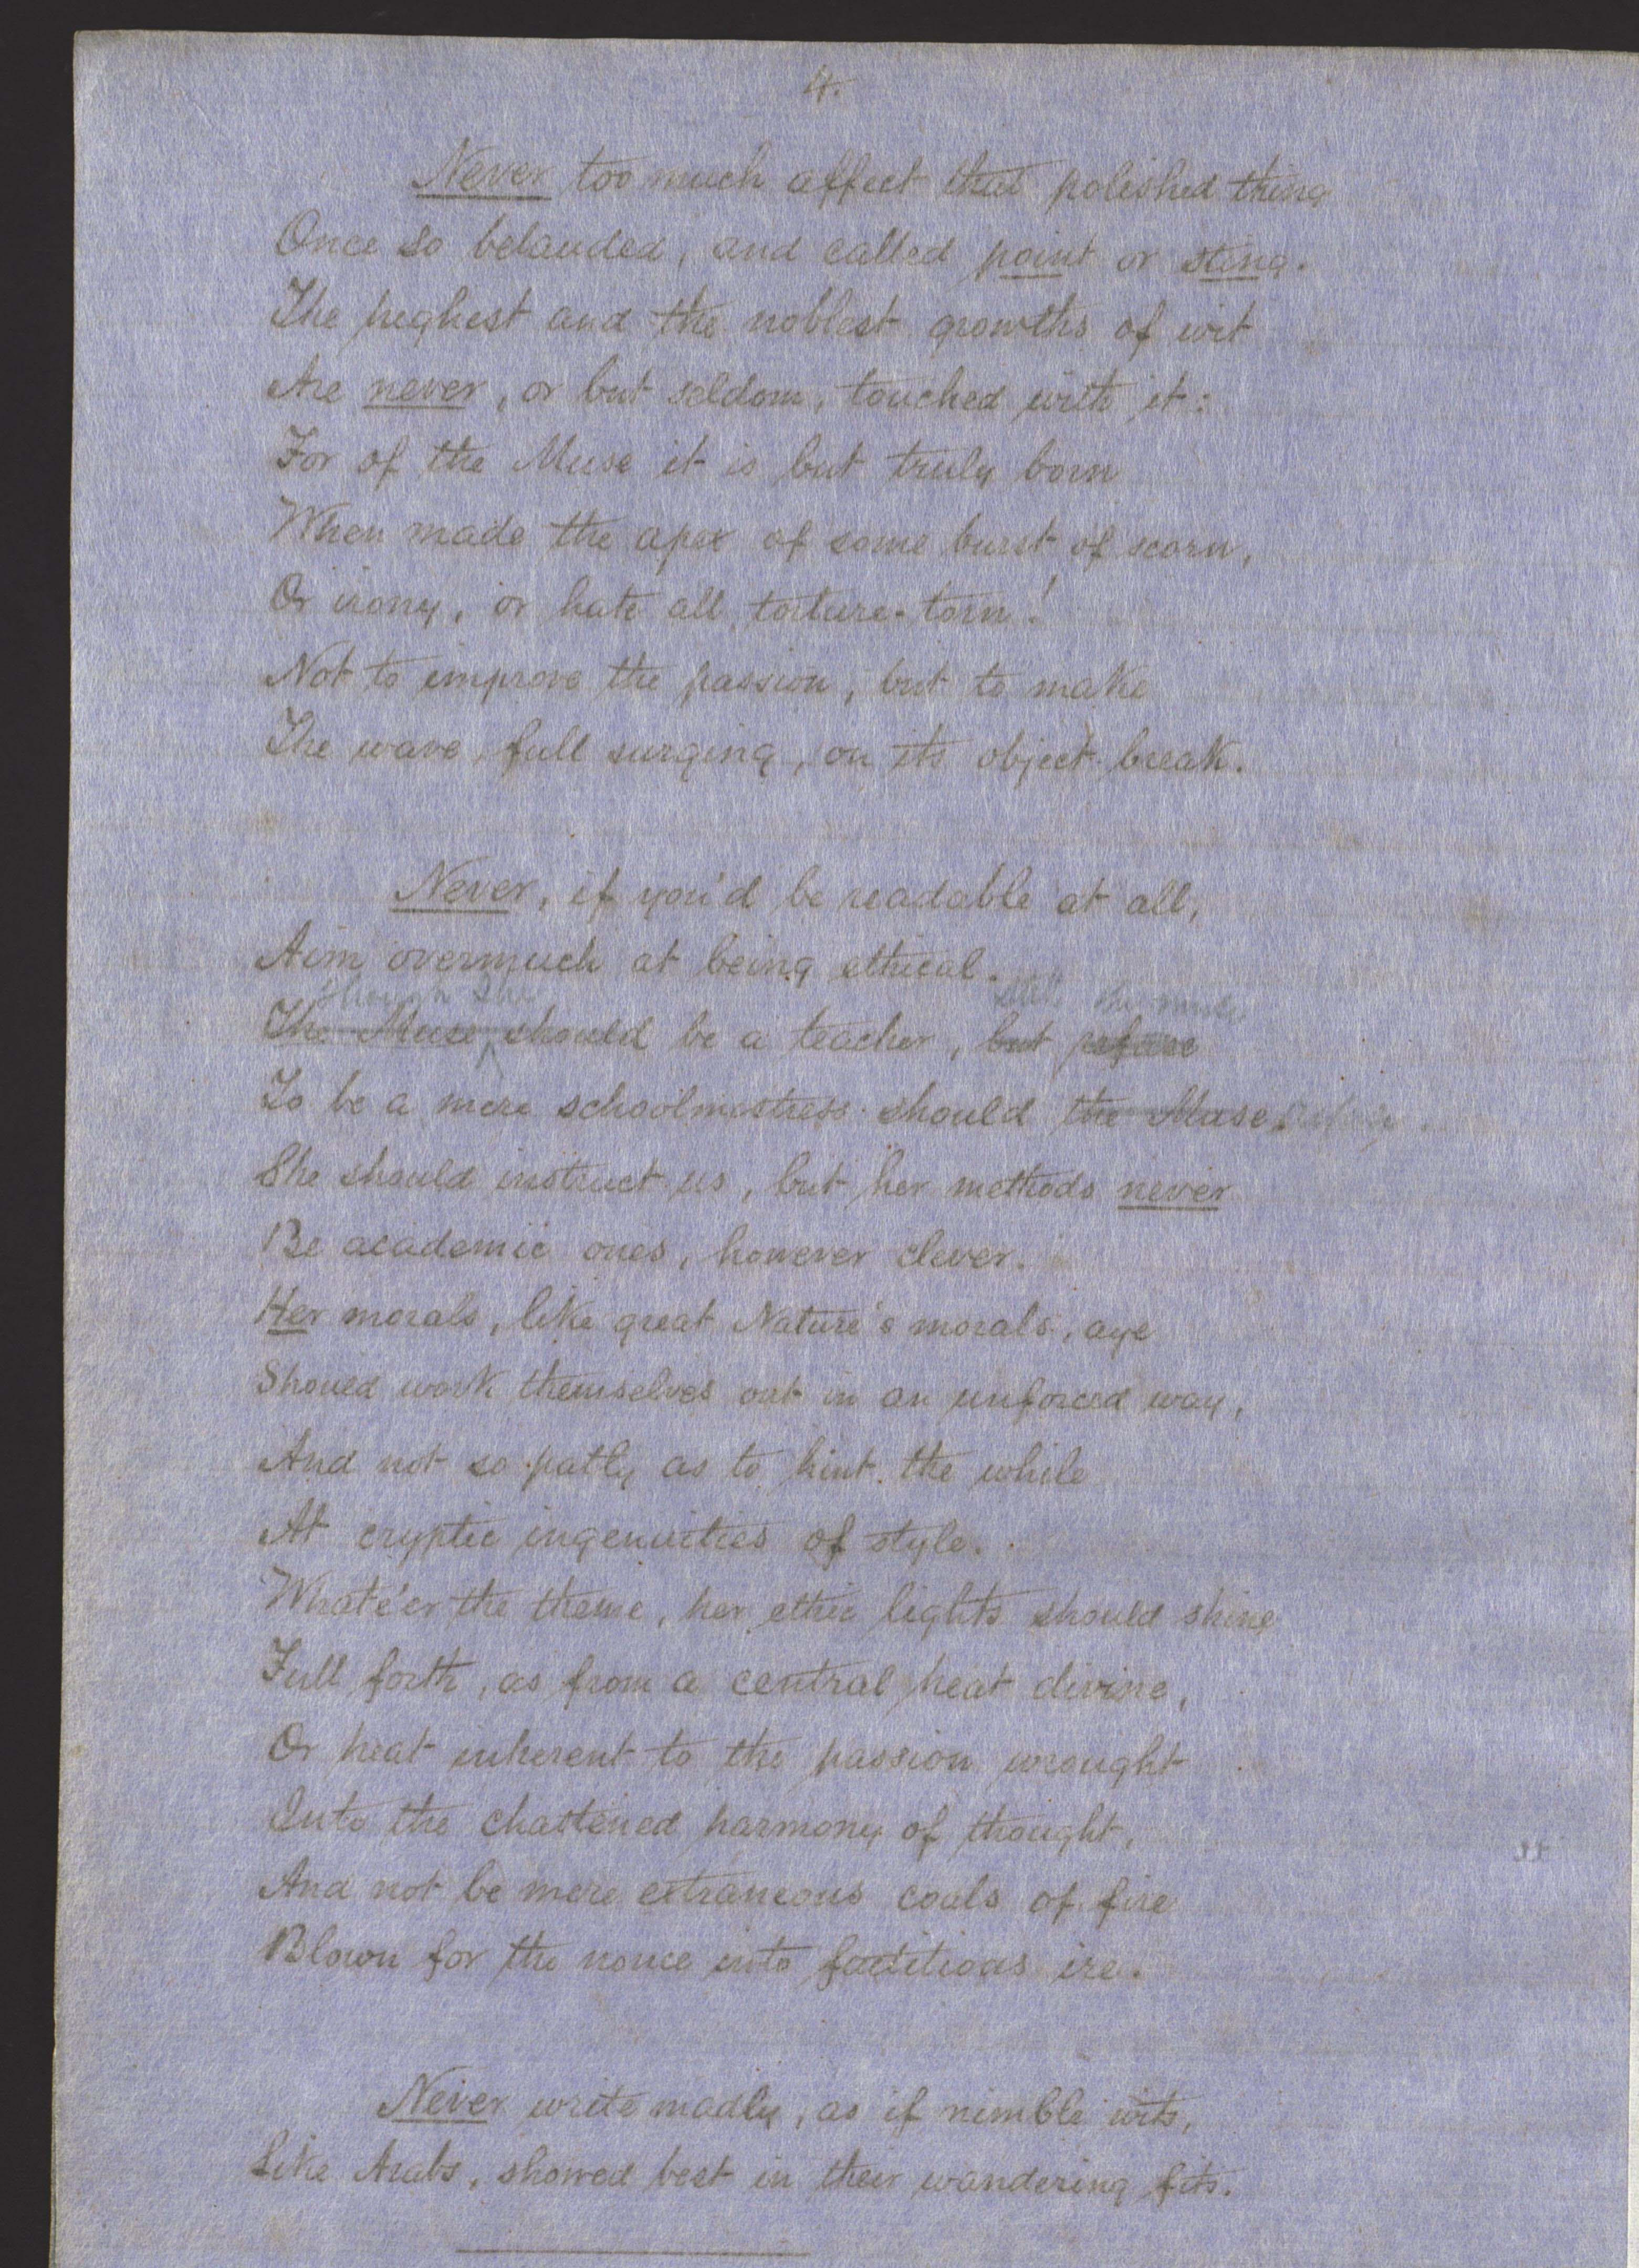 4.
Never too much affect that polished thing
Once so belauded, and called point or sting.
The highest and the noblest growths of wit
Are never, or but seldom, touched with it:
For of the Muse it is but truly born
When made the apex of some burst of scorn,
Or irony, or hate all torture-torn!
Not to improve the passion, but to make
The wave, full surging, on its object break.
Never, if you'd be readable at all,
Aim overmuch at being ethical.
though she
The Muse should be a teacher, but refuse
To be a mere schoolmistress should the Muse. refuse.
She should instruct us, but her methods never
Be academic ones, however clever.
Her morals, like great Nature's morals, aye
Should work themselves out in an unforced way,
And not so patly as to hint the while
At cryptic ingenuities of style.
What e'er the theme, her ethic lights should shine
Full forth, as from a central heat divine,
Or heat inherent to the passion wrought
Into the chastened harmony of thought,
And not be mere extraneous coals of fire
Blown for the nonce into factitious ire.
Never write madly, as if nimble wits,
Like Arabs, showed best in their wandering fits.